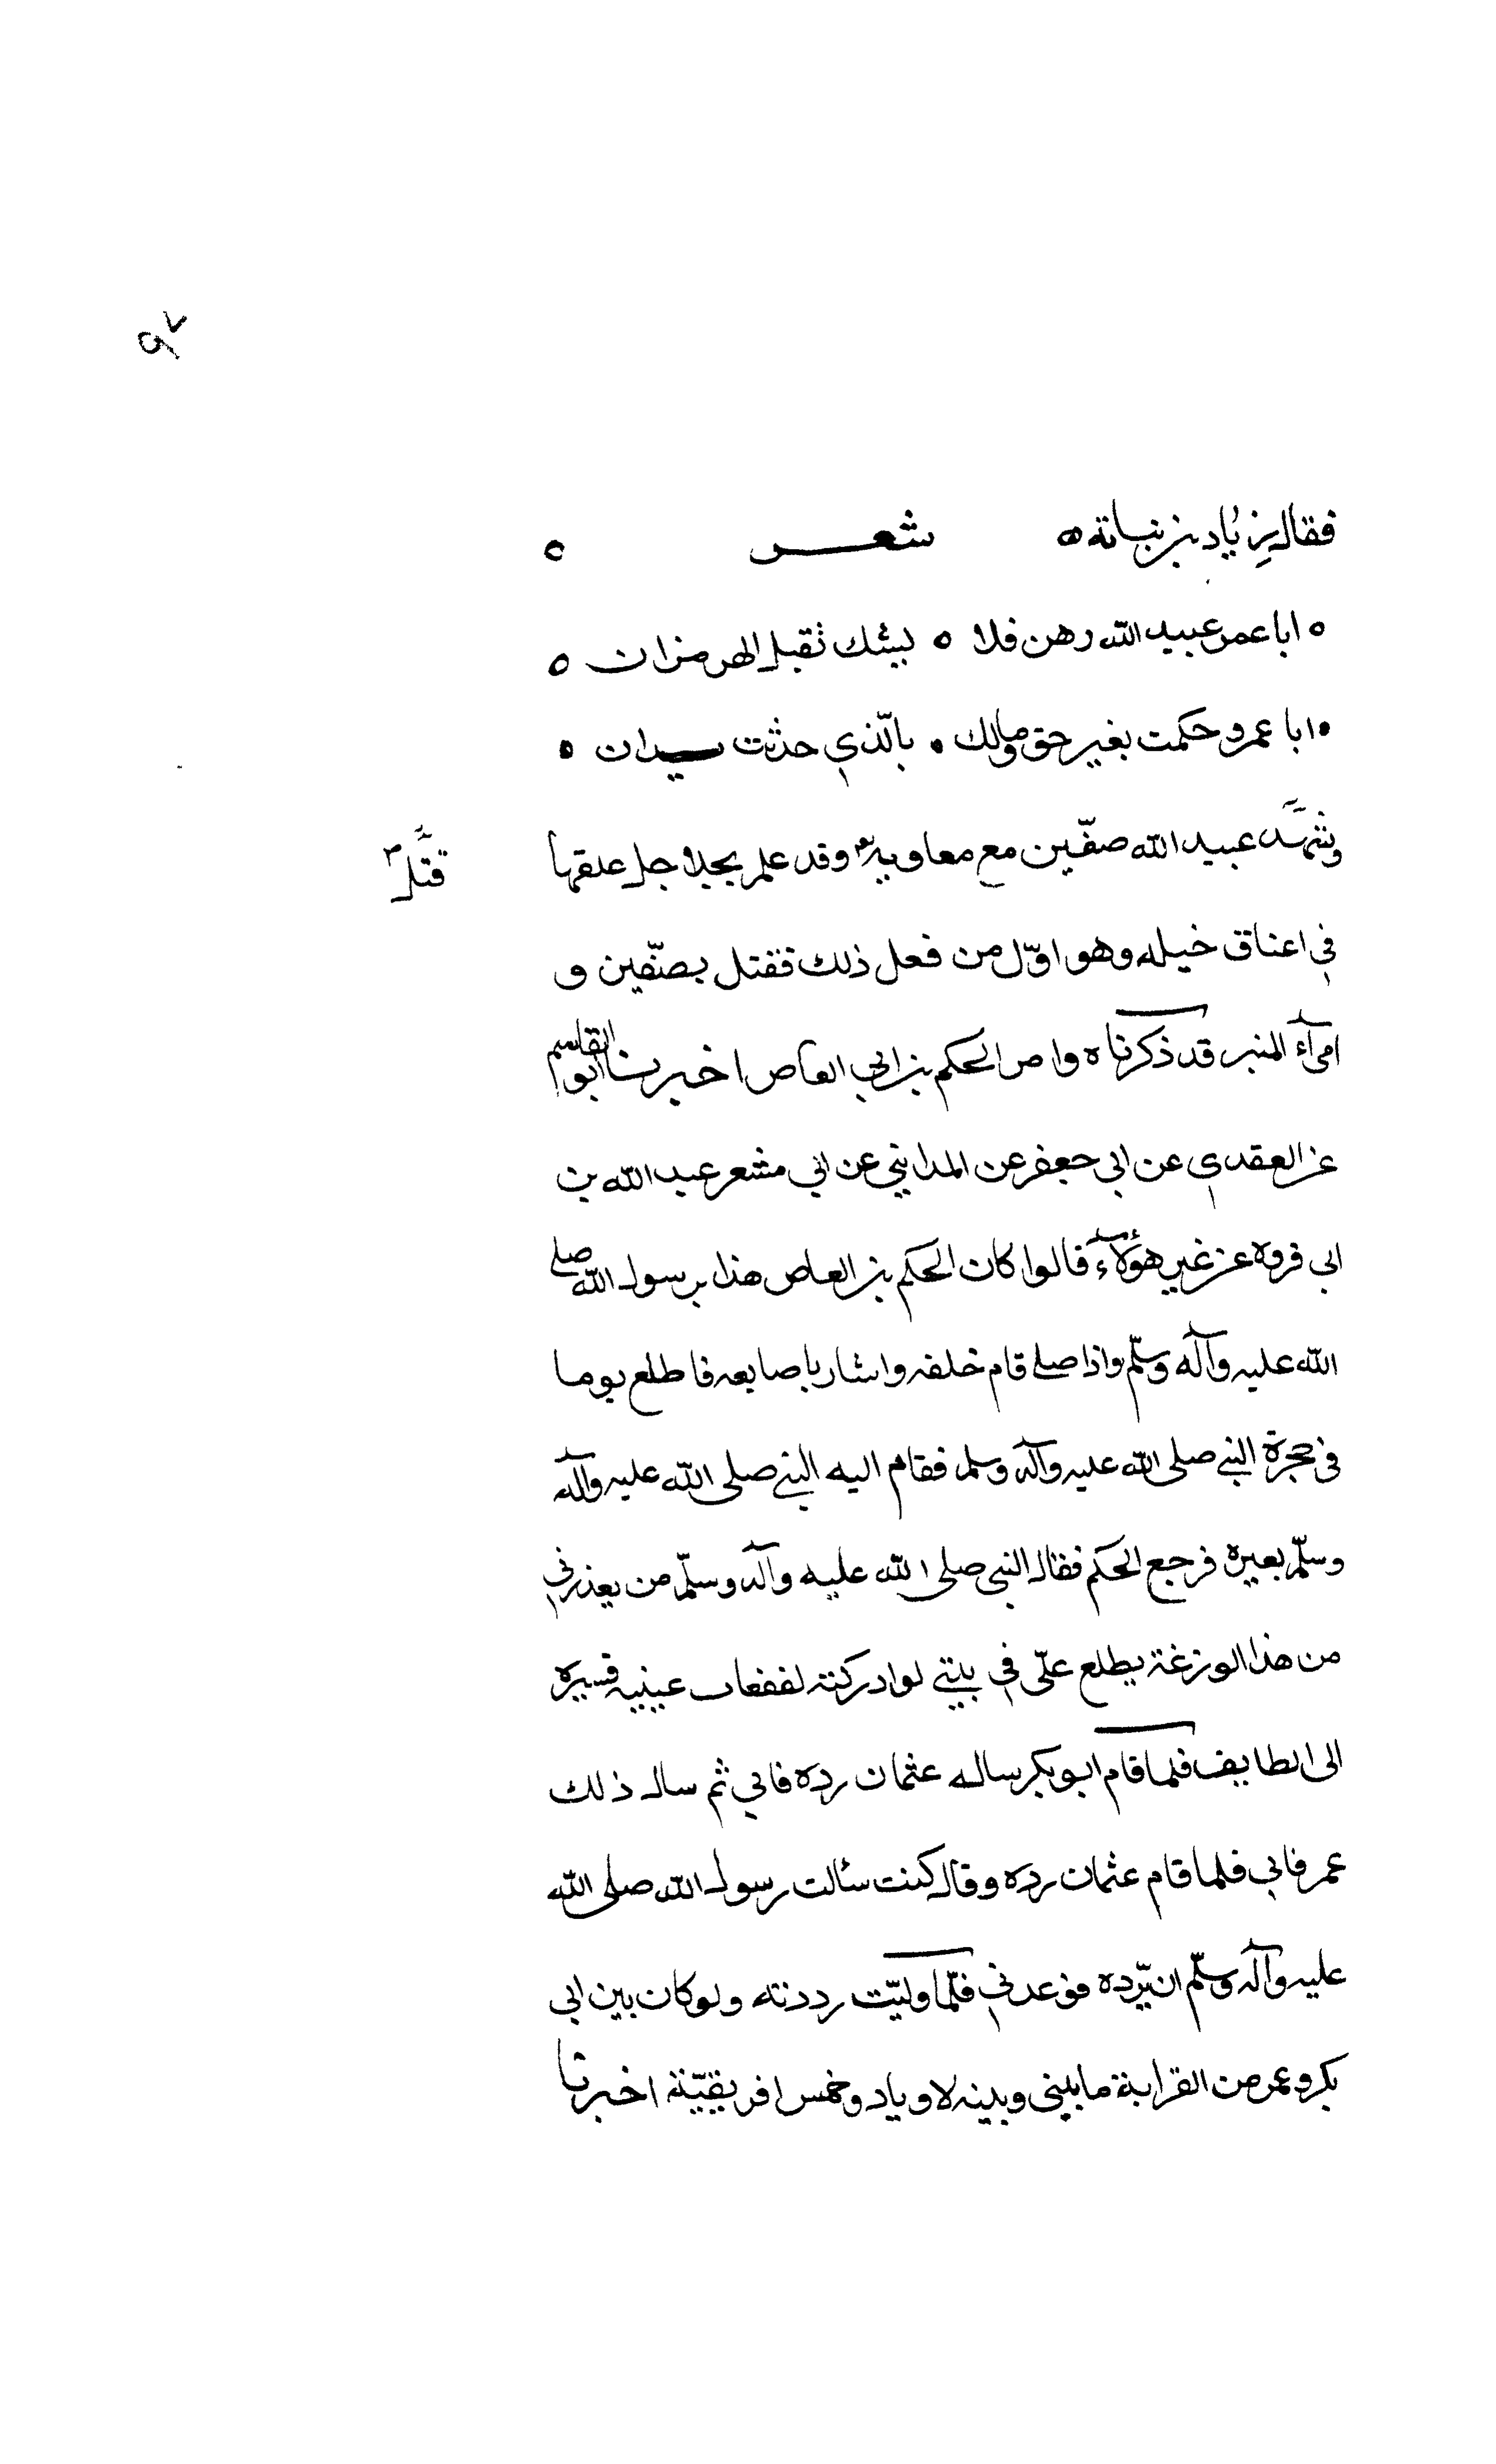 ٩٧
فقال يزياد بن نباته ٥ شعر ٥
٥ ابا عمر عبيد الله رهن فلا ٥ يشك نقبل الهرمزان ٥
٥ ابا عمرو حكمت بغير حق ومالك ٥ بالّذي حدثت يدان ٥
وشهد عبيد الله صفّين مع معاوية وقد علم بجلاجل علقها
قتل
في اعناق خيله وهو اوّل من فعل ذلك فقتل بصفّين و
امرآء المنبر قد ذكرنا ه وامر الحكم بن ابي العاص اخبرنا ابو القاسم
عن العقدي عن ابي جعفر عن المدايني عن ابي مشعر عبد الله بن
ابي فروه عن غير هؤلآء قالوا كان الحكم بن العاص هذا برسول الله صلى
الله عليه وآله وسلّم واذا صلى قام خلفه واشار باصابعه فاطلع يوما
في حجرة النبي صلى الله عليه وآله وسلم فقام اليه النبي صلى الله عليه وآله
وسلّم بعيره فرجع الحكم فقال النبي صلى الله عليه وآله وسلّم من يعذرني
من هذا الوزغة يطلع علّي في بيتي لو ادركته لفقعات عينيه فسيره
الى الطايف فلما قام ابو بكر ساله عثمان رده فابي ثم سال ذلك
عمر فابي فلما قام عثمان رده وقال كنت سألت رسول الله صلى الله
عليه وآله وسلّم ان يّرده فوعدني فلّما وليّت رددته ولو كان بين ابي
بكر وعمر من القرابة ما بيني وبينه لاوياد وخمس افريقيّة اخبرنا